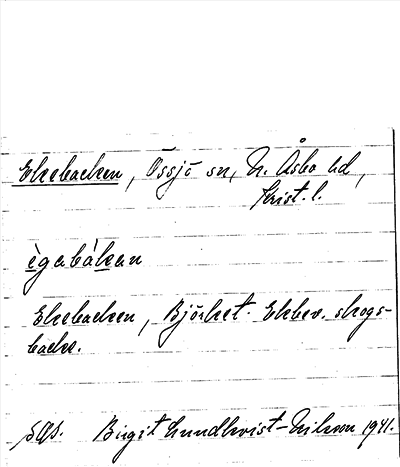 Ekebacken, Össjö sn, N. Åsbo hd,
Krist. l.
ègabákan
Ekebacken, Björket. Ekbev. skogs-
backe.
SOS. Birgit Lundkvist-Nilsson 1941.